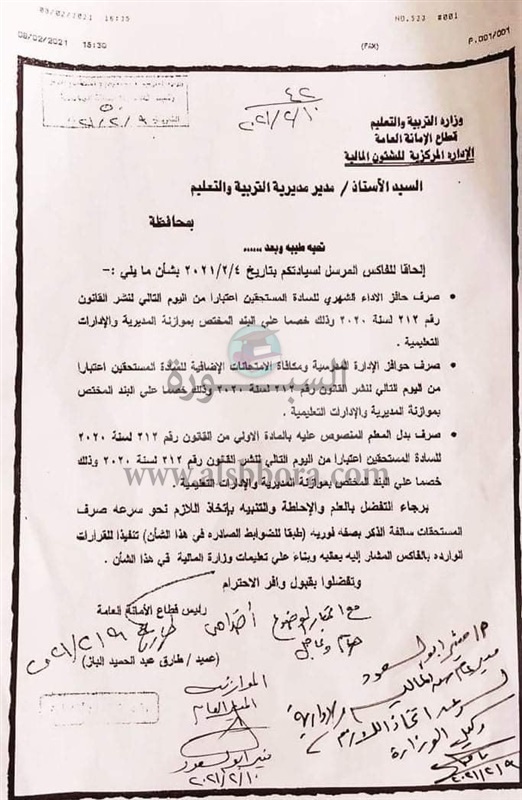 08/02/2021 16:35 NO.523 #001
08/02/2021 16:30 (FAX) P.001/001
٤٢
٢٠٢١/٢/١٠
وزارة التربية والتعليم
قطاع الأمانة العامة
الإدارة المركزية للشئون المالية
السيد الأستاذ / مدير مديرية التربية والتعليم
بمحافظة
تحيه طيبه وبعد ......
إلحاقا للفاكس المرسل لسيادتكم بتاريخ ٢٠٢١/٢/٤ بشأن ما يلي :-
• صرف حافز الاداء الشهري للسادة المستحقين اعتبارا من اليوم التالي لنشر القانون
رقم ٢١٢ لسنة ٢٠٢٠ وذلك خصما علي البند المختص بموازنة المديرية والإدارات
التعليمية .
• صرف حوافز الإدارة المدرسية ومكافأة الامتحانات الإضافية للسادة المستحقين اعتبارا
من اليوم التالي لنشر القانون رقم ٢١٢ لسنة ٢٠٢٠ وذلك خصما علي البند المختص
بموازنة المديرية والإدارات التعليمية .
• صرف بدل المعلم المنصوص عليه بالمادة الاولي من القانون رقم ٢١٢ لسنة ٢٠٢٠
للسادة المستحقين اعتبارا من اليوم التالي لنشر القانون رقم ٢١٢ لسنة ٢٠٢٠ وذلك
خصما علي البند المختص بموازنة المديرية والإدارات التعليمية .
السبورة
www.alsbbora.com
برجاء التفضل بالعلم والإحاطة والتنبيه بإتخاذ اللازم نحو سرعه صرف
المستحقات سالفة الذكر بصفه فوريه (طبقا للضوابط الصادره في هذا الشأن) تنفيذا للقرارات
الوارده بالفاكس المشار إليه بعقبه وبناء علي تعليمات وزارة المالية في هذا الشأن .
وتفضلوا بقبول وافر الاحترام
رئيس قطاع الأمانة العامة
(عميد / طارق عبد الحميد الباز)
مع اعتبار الموضوع
هام وعاجل
طارق
٢٠٢١/٢/٩
الموازنه
المدير العام
منير ابو السعود
٢٠٢١/٢/١٠
ا/ منير ابو السعود
مدير عام
المالية والإدارية
اتخاذ اللازم
وكيل الوزارة
٢٠٢١/٢/٩